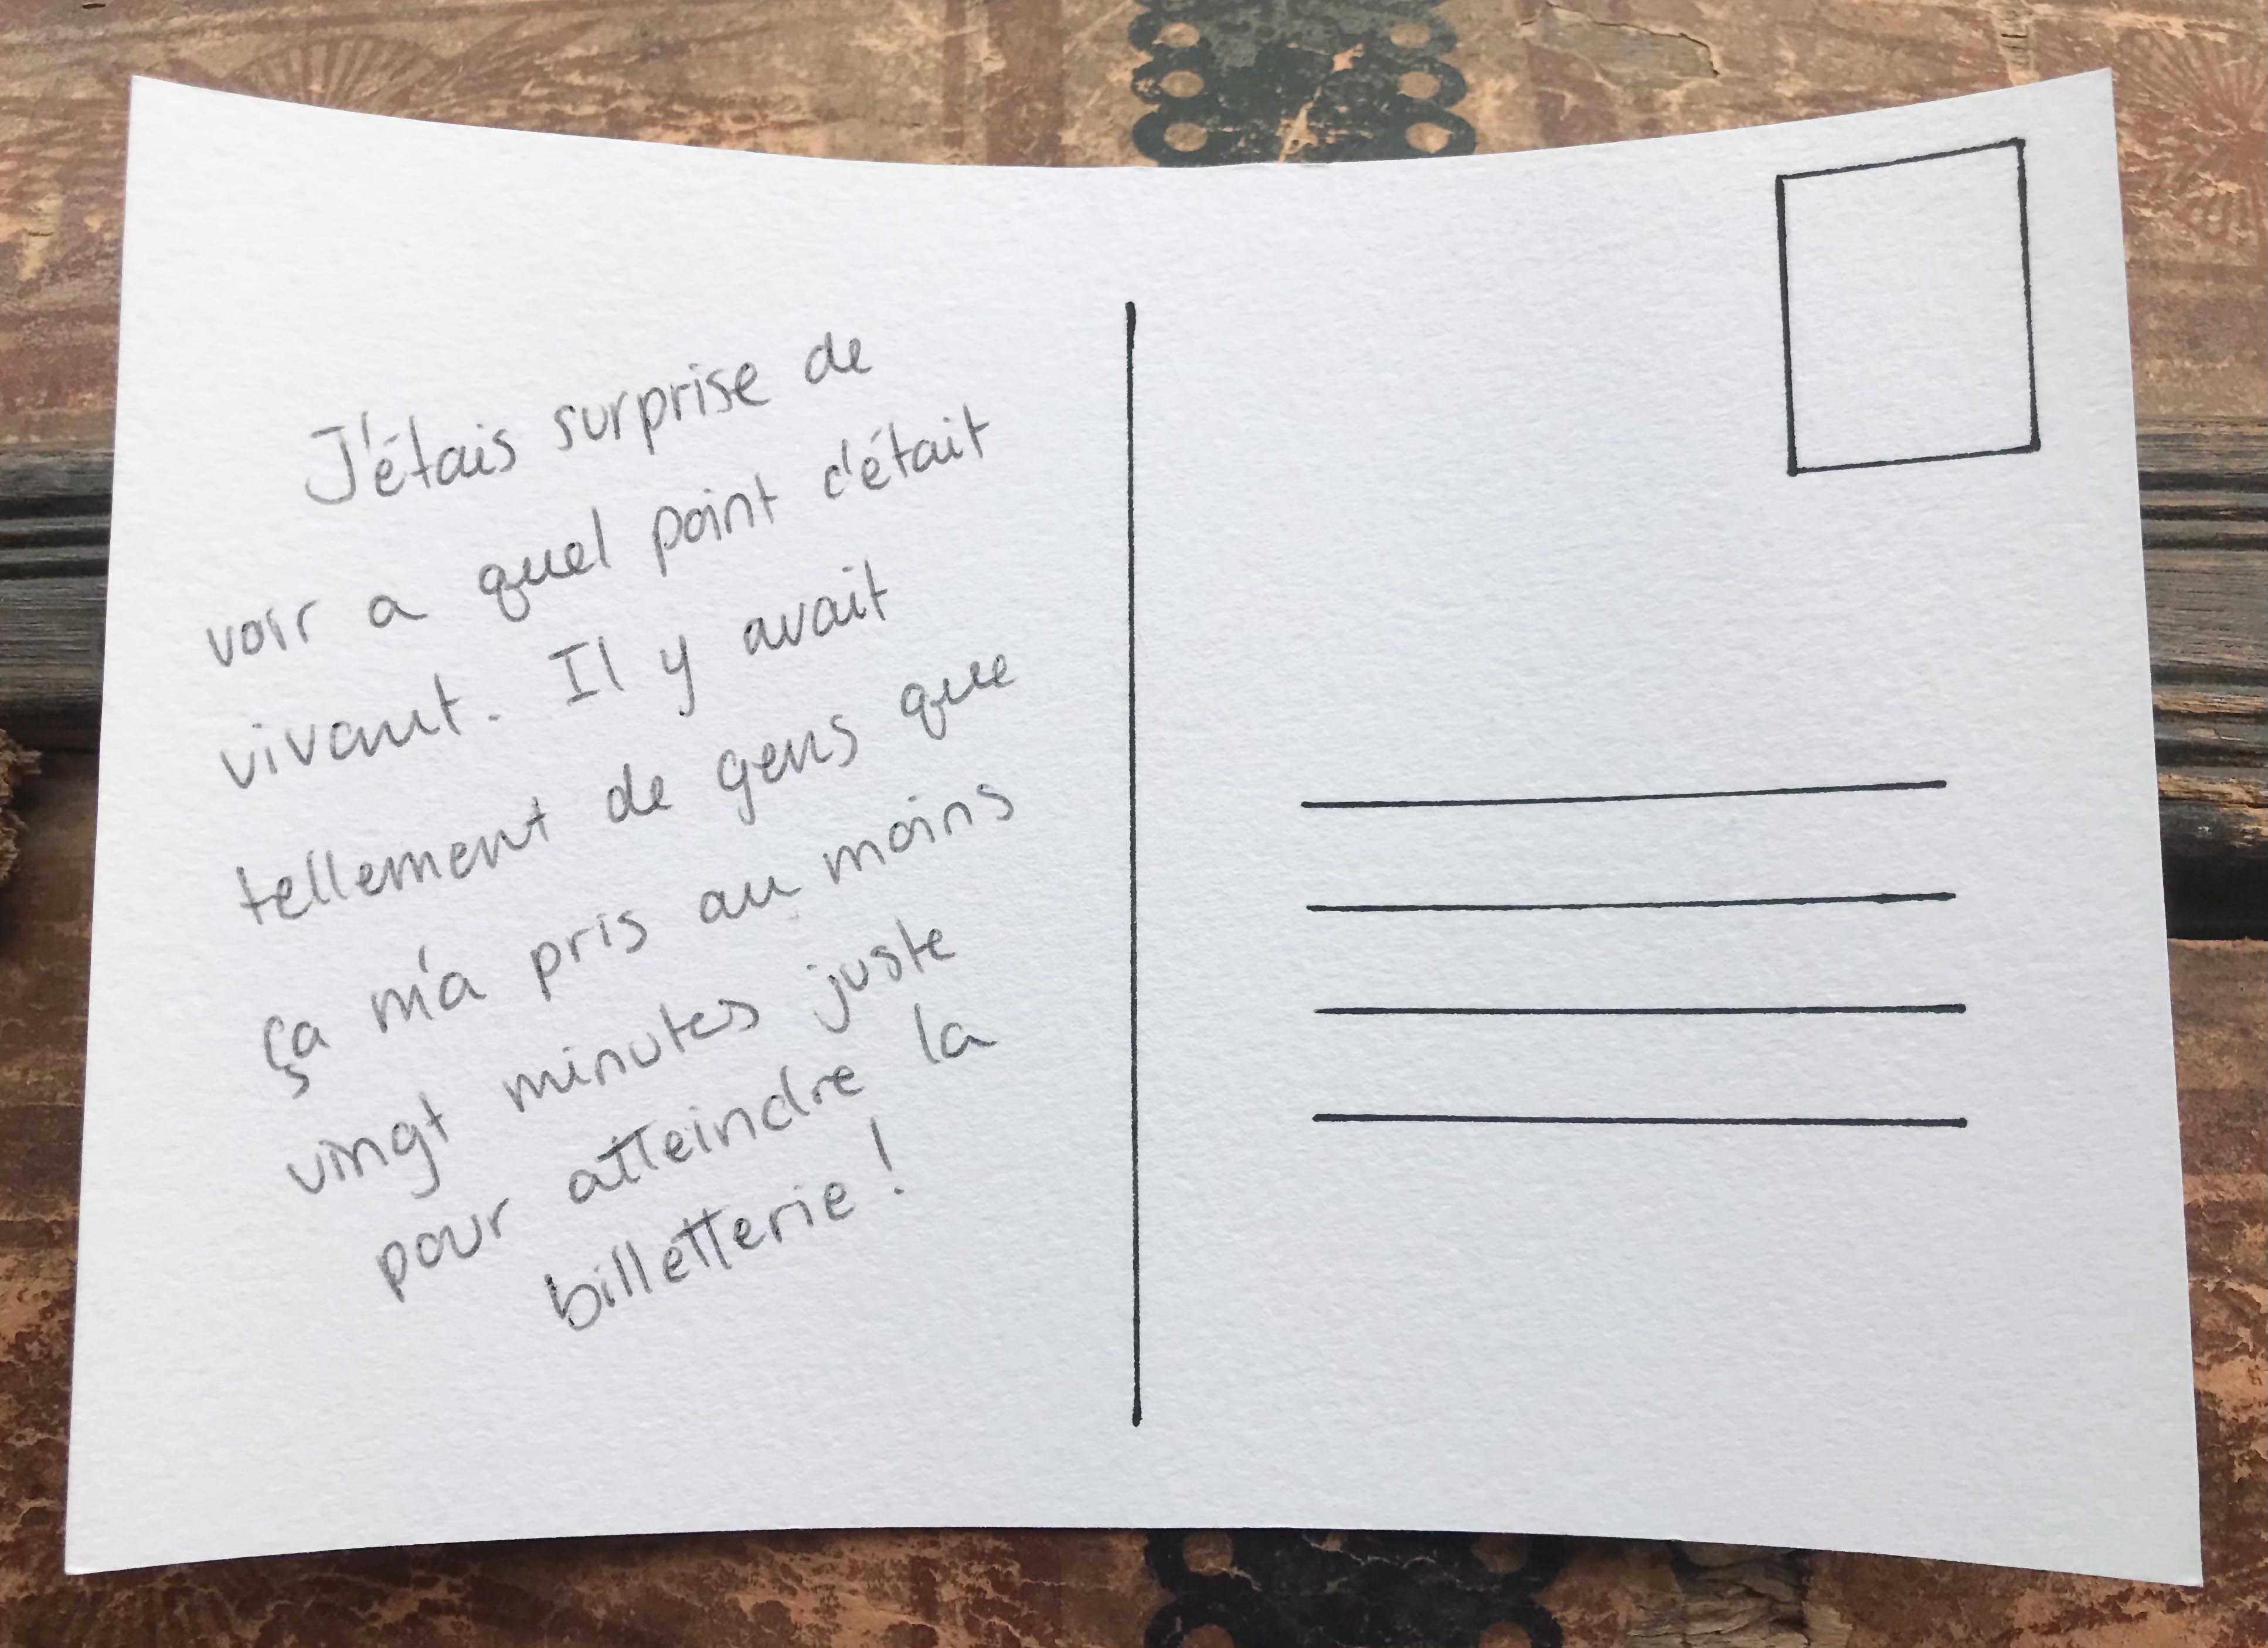 J'étais surprise de
voir a quel point c'était
vivant. Il y avait
tellement de gens que
ça m'a pris au moins
vingt minutes juste
pour atteindre la
billetterie !